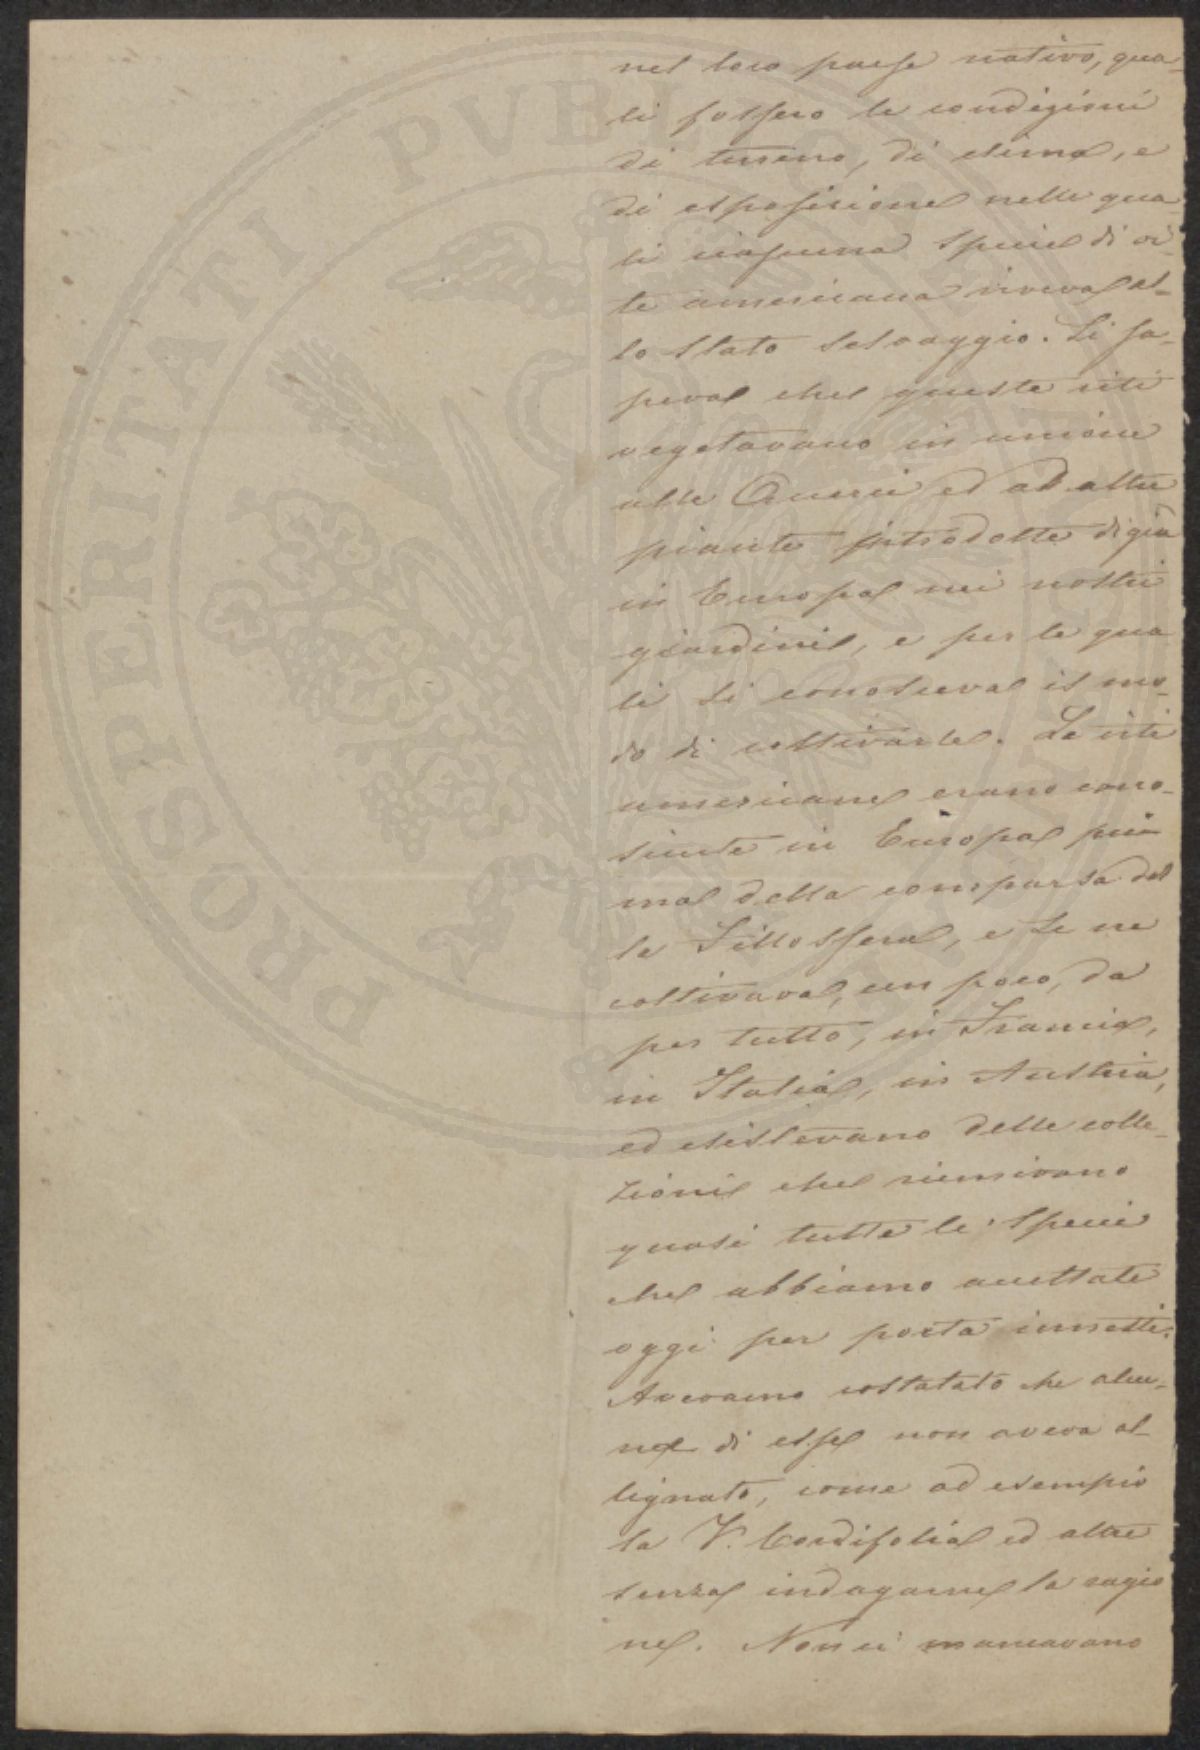 nel loro paese nativo, qua-
li fossero le condizioni
di terreno, di clima, e
di esposizione nelle qua-
li ciascuna specie di vi-
te americana viveva al-
lo stato selvaggio. Si sa-
peva che queste viti
vegetavano in unione
alle Querci ed ad altre
piante introdotte digià
in Europa nei nostri
giardini, e per le qua
li si conosceva il mo-
do di coltivarle. Le viti
americane erano cono-
sciute in Europa pri-
ma della comparsa del
la Fillossera, e se ne
coltivava, un poco, da
per tutto, in Francia,
in Italia, in Austria,
ed esistevano delle colle-
zioni che riunivano
quasi tutte le specie
che abbiamo accettate
oggi per porta innesti.
Avevamo costatato che alcu-
na di esse non aveva al-
lignato, come ad esempio
la V. Cordifolia ed altre
senza indagarne la ragio
ne. Non ci mancavano
PROSPERITATI PVBLICAE